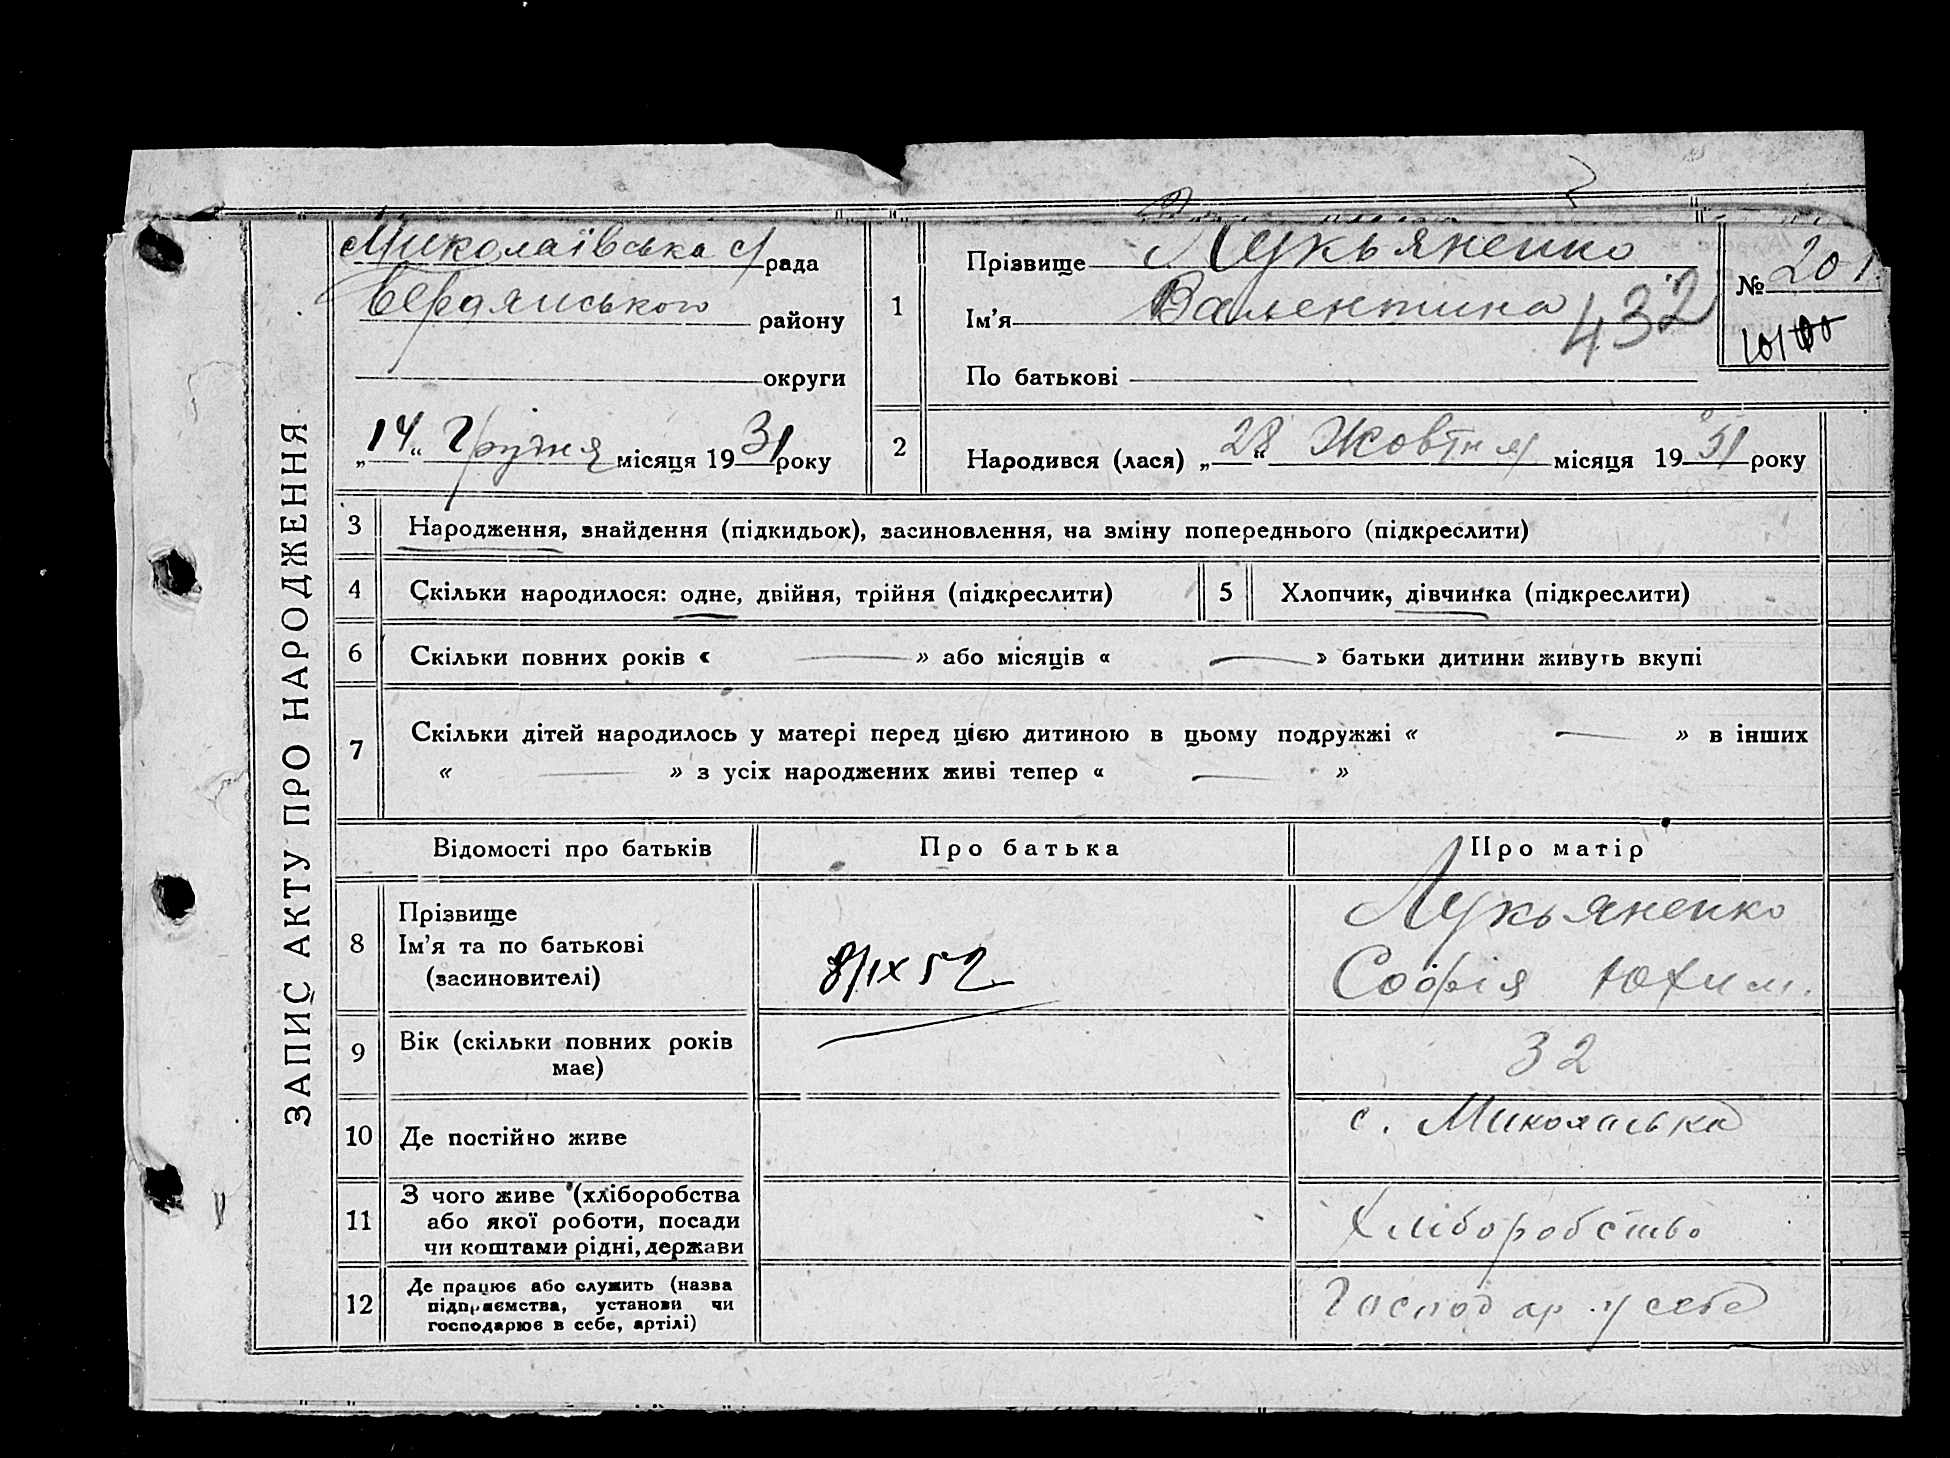 ЗАПИС АКТУ ПРО НАРОДЖЕННЯ
Миколаївська с/рада
Бердянського району
округи
„14“ Грудня місяця 1931 року
1
Прізвище Лукьяненко
Ім’я Валентина
432
По батькові
№ 201
2
Народився (лася) „28“ Жовтня місяця 1931 року
3 Народження, знайдення (підкидьок), засиновлення, на зміну попереднього (підкреслити)
4 Скільки народилося: одне, двійня, трійня (підкреслити)
5 Хлопчик, дівчинка (підкреслити)
6 Скільки повних років « — » або місяців « — » батьки дитини живуть вкупі
7 Скільки дітей народилось у матері перед цією дитиною в цьому подружжі « — » в інших
« — » з усіх народжених живі тепер « — »
Відомості про батьків
Про батька
Про матір
8
Прізвище
Ім’я та по батькові
(засиновителі)
8/IX 52
Лукьяненко
Софія Юхим.
9
Вік (скільки повних років
має)
32
10 Де постійно живе
с.
11
З чого живе (хліборобства
або якої роботи, посади
чи коштами рідні, держави
Хліборобство
12
Де працює або служить (назва
підприємства, установи чи
господарює в себе, артілі)
Господар у себе